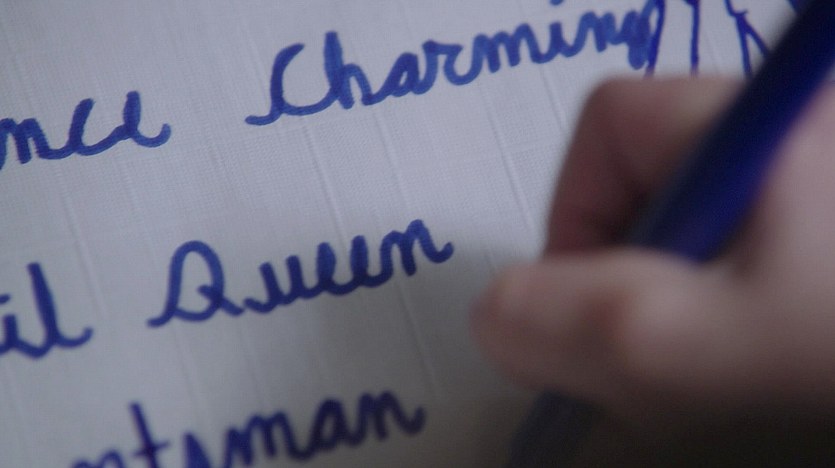 nce Charming
il Queen
ntsman